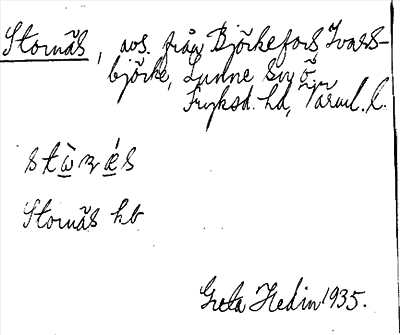 Stornäs, avs. från Björkefors Ivars-
björke, Lunne sv ö.
Fryksd. hd, Värml. l.
stὼ̲rnǽ̲s
Stornäs hb
Greta Hedin 1935.